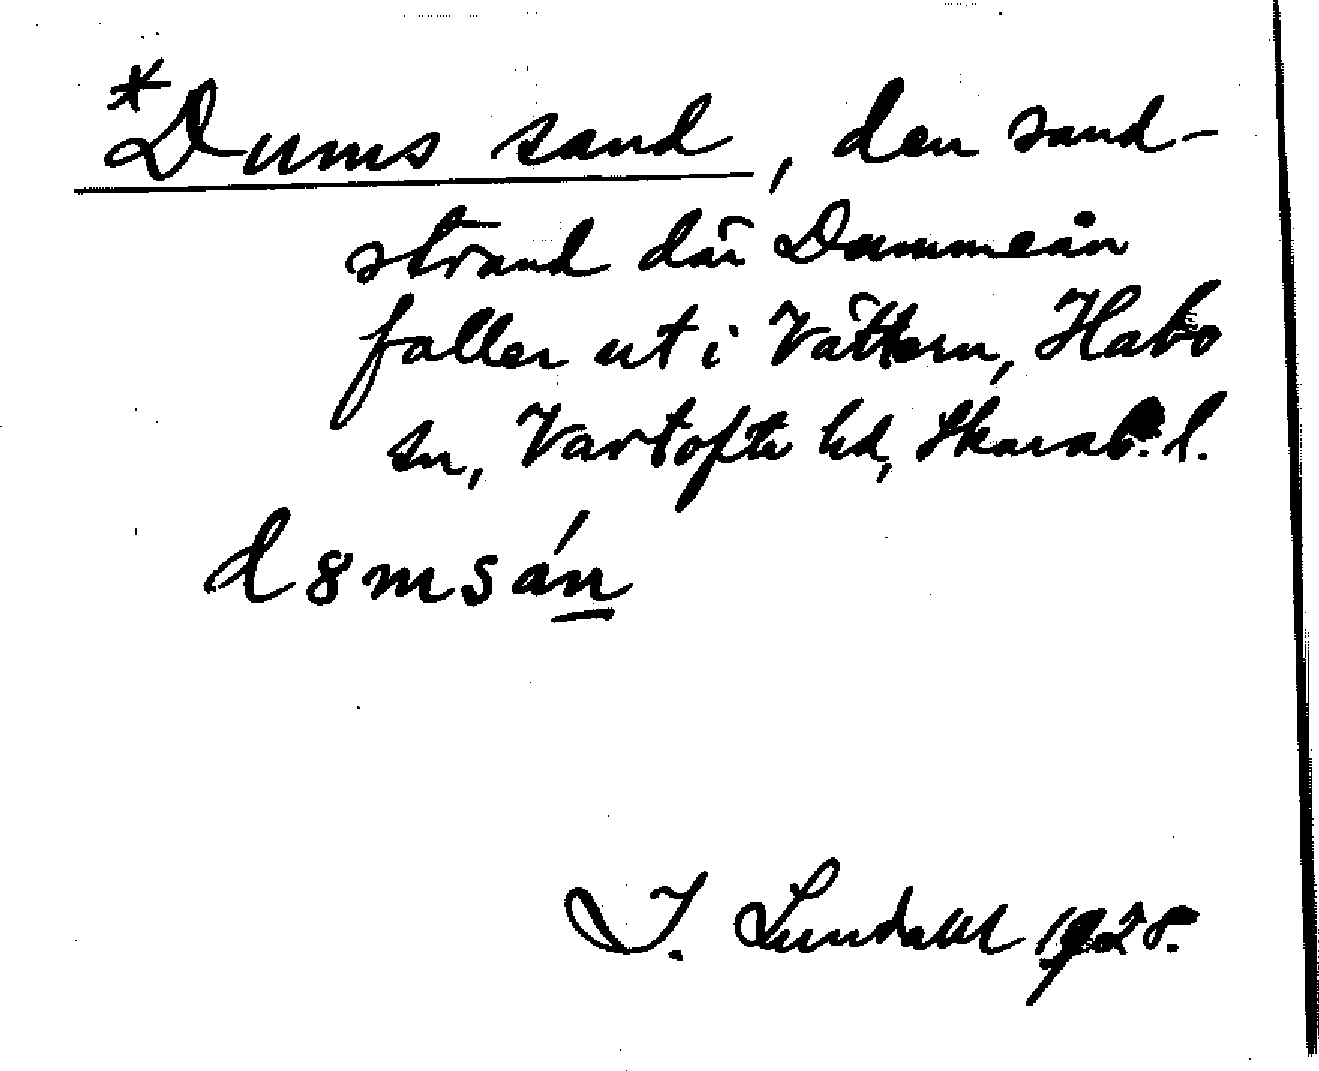 *Dums sand, den sand-
strand där Dummeån
faller ut i Vättern, Habo
sn, Vartofta hd, Skarab. l.
d8msán
I. Lundahl 1928.